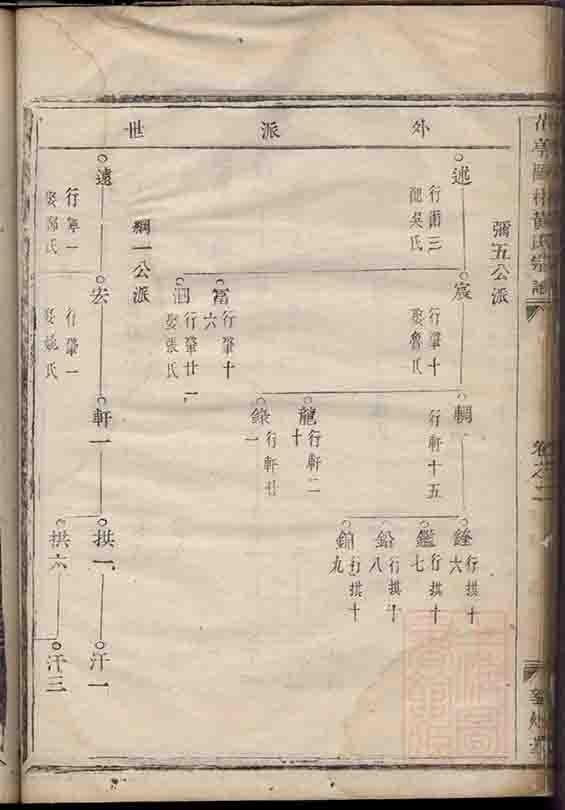 外派世
黃氏宗譜
卷之二
彌五公派
述
行爾三
配吳氏
宸
行肇十
娶魯氏
富
行肇十六
泗
行肇廿一
娶張氏
輖
行軒十五
龍
行軒二十
錄
行軒廿一
銓
行拱十六
鑑
行拱十七
鉛
行拱十八
行拱十九
綱一公派
遠
行寧一
娶鄔氏
宏
行肇一
娶姚氏
軒一
拱一
拱六
汗一
汗三